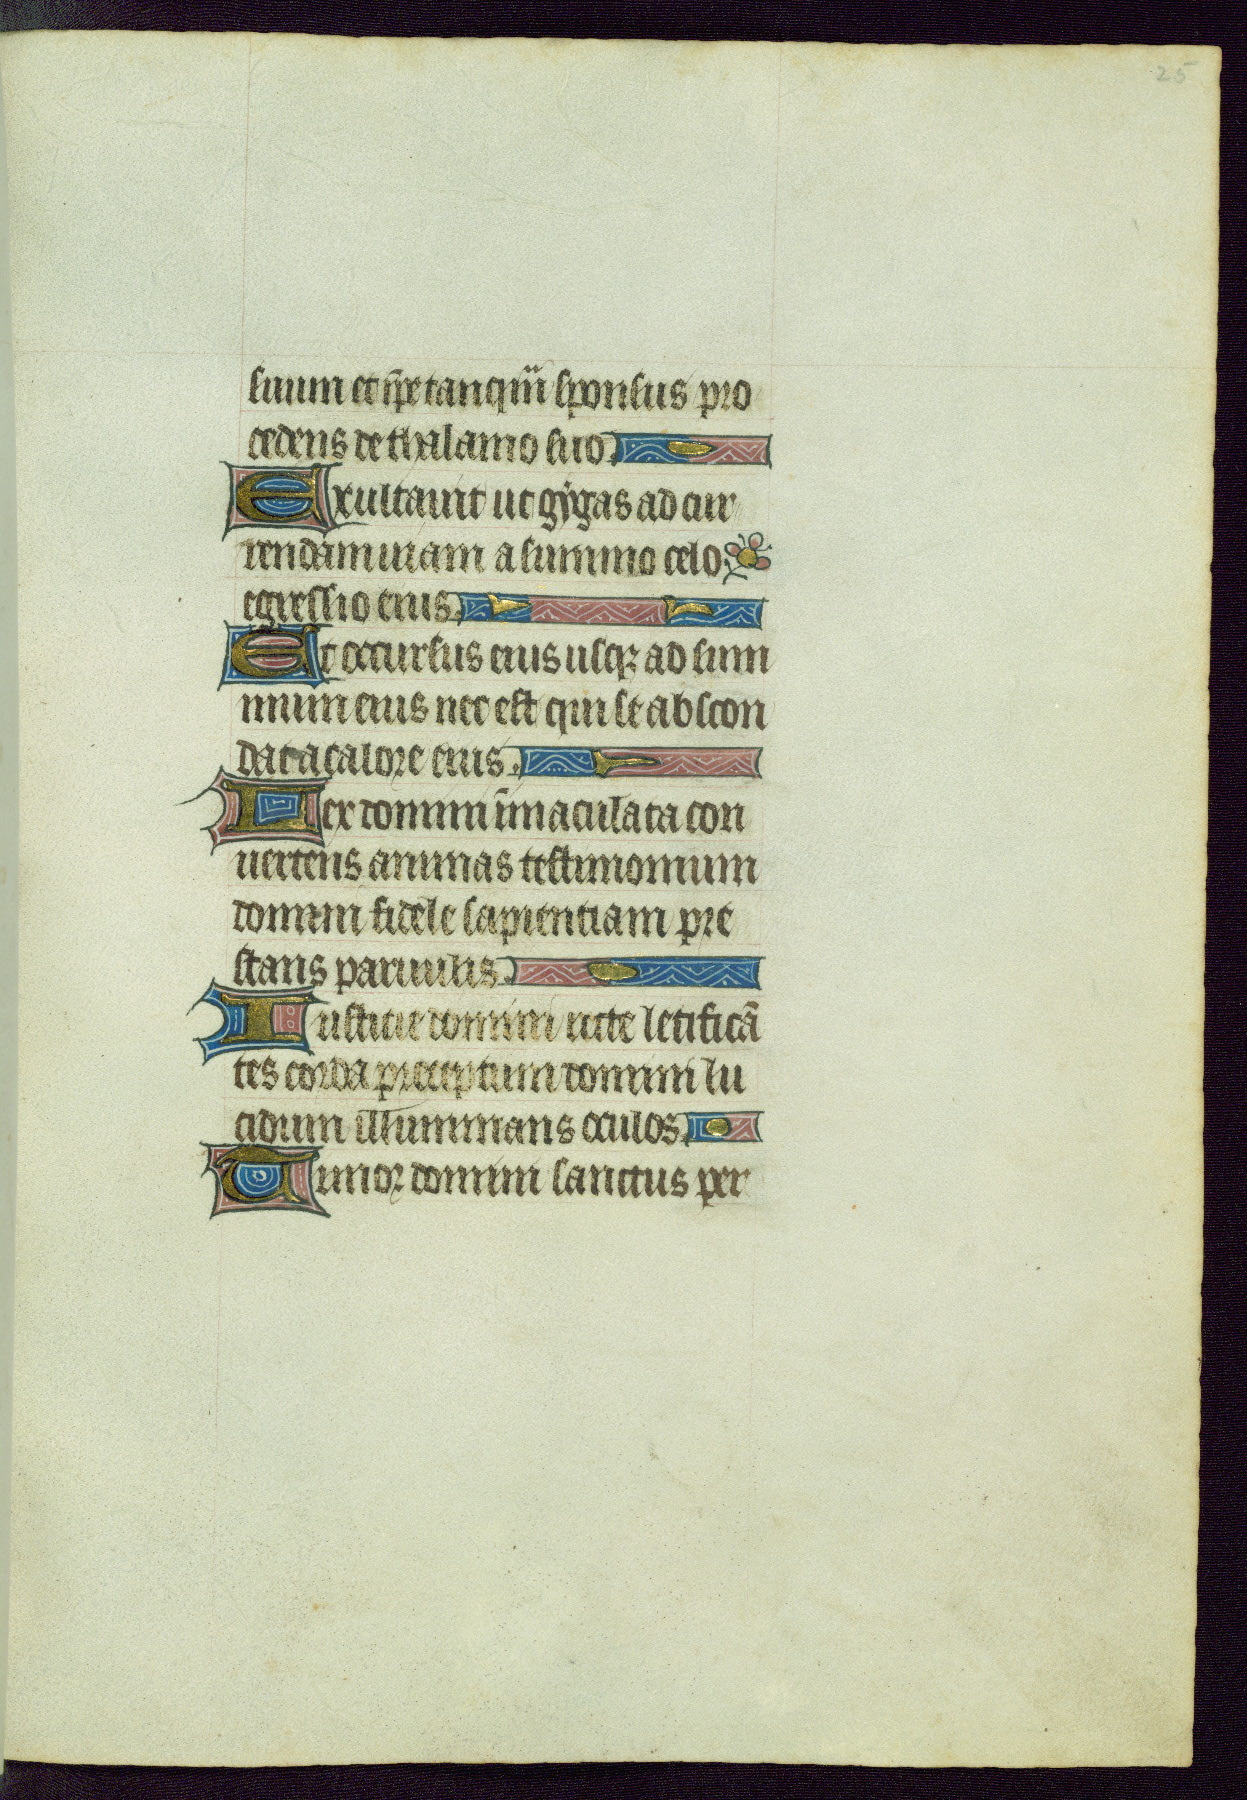 25
suum et ip̄e tanqm̄ sponsus pro
cedens de thalamo suo.
Exultauit ut gygas ad cur
rendam uiam a summo celo
egressio eius.
Et occursus eius usqꝫ ad sum
mum eius nec est qui se abscon
dat a calore eius.
Lex domini īmaculata con
uertens animas testimonium
domini fidele sapientiam pre
stans paruulis.
Iusticie domini recte letificā
tes corda preceptum domini lu
cidum illuminans oculos.
Timor domini sanctus per